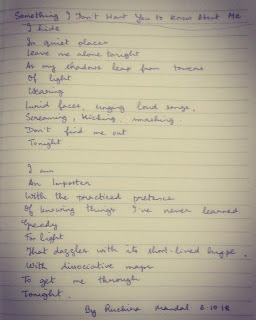 Something I Don't Want You to Know About Me
I hide
In quiet places
Leave me alone tonight
As my shadows leap from towers
Of light
Wearing
Lurid faces, singing loud songs,
Screaming, kicking, smashing
Don't find me out
Tonight
I am
An Imposter
With the practiced pretence
Of knowing things I've never learned
Speedy
To light
That dazzles with its short-lived
With dissociative maps
To get me through
Tonight.
By Ruchira Mandal 2.10.18